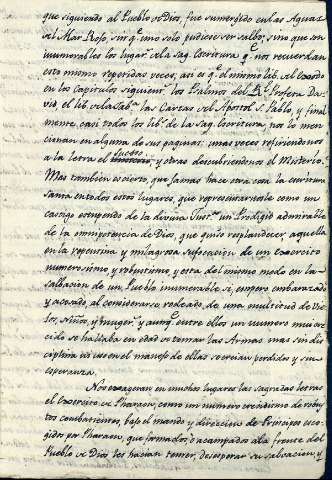 que siguiendo al Pueblo de Dios, fue sumergido en las Aguas
del Mar Rojo, sin qe. uno solo pudiese ser salbo, sino que son
innumerables los lugars. de la sag. Escritura qe. nos recuerdan
esto mismo repetidas veces; asi es qe. el mismo lib. del Exodo
en los Capitulos siguients. los Psalmos del Rl. Profeta Da-
vid, el lib. de la Sabia. las Cartas del Apostol S. Pablo, y final
mente, casi todos los libs. de la Sag. Escritura, nos lo men
cionan en alguna de sus paginas: unas veces refiriendonos
a la letra el suceso, y otras descubriendonos el Misterio.
Mas tambien es cierto, que jamas hace otra cosa la escritura
santa en todos estos lugares, que representarnoslo como un
castigo estupendo de la divina Justa. un Prodigio admirable
de la omnipotencia de Dios, que quiso resplandecer, aquella
en la repentina y milagrosa sufocacion de un Exercito
numerosisimo y robustisimo, y esta del mismo modo en la
salbacion de un Pueblo innumerable si, empero embarazado
y acosado, al considerarse rodeado de una multitud de Vie
jos, Niños, y mugers. y aunqe. entre ellos un numero mui cre
cido se hallaba en edad de tomar las Armas, mas sin dis
ciplina ni uso en el manejo de ellas se creian perdidos y sin
esperanza.
Nos exageran en muchos lugares las sagradas letras
el Exercito de Pharaon, como un numero crecidisimo de
tos combatientes, bajo el mando y direccion de Principes esco
gidos pr. Pharaon, que formados, o acampados a la frente del
Pueblo de Dios les hacian temer, desesperar su salbacion, y